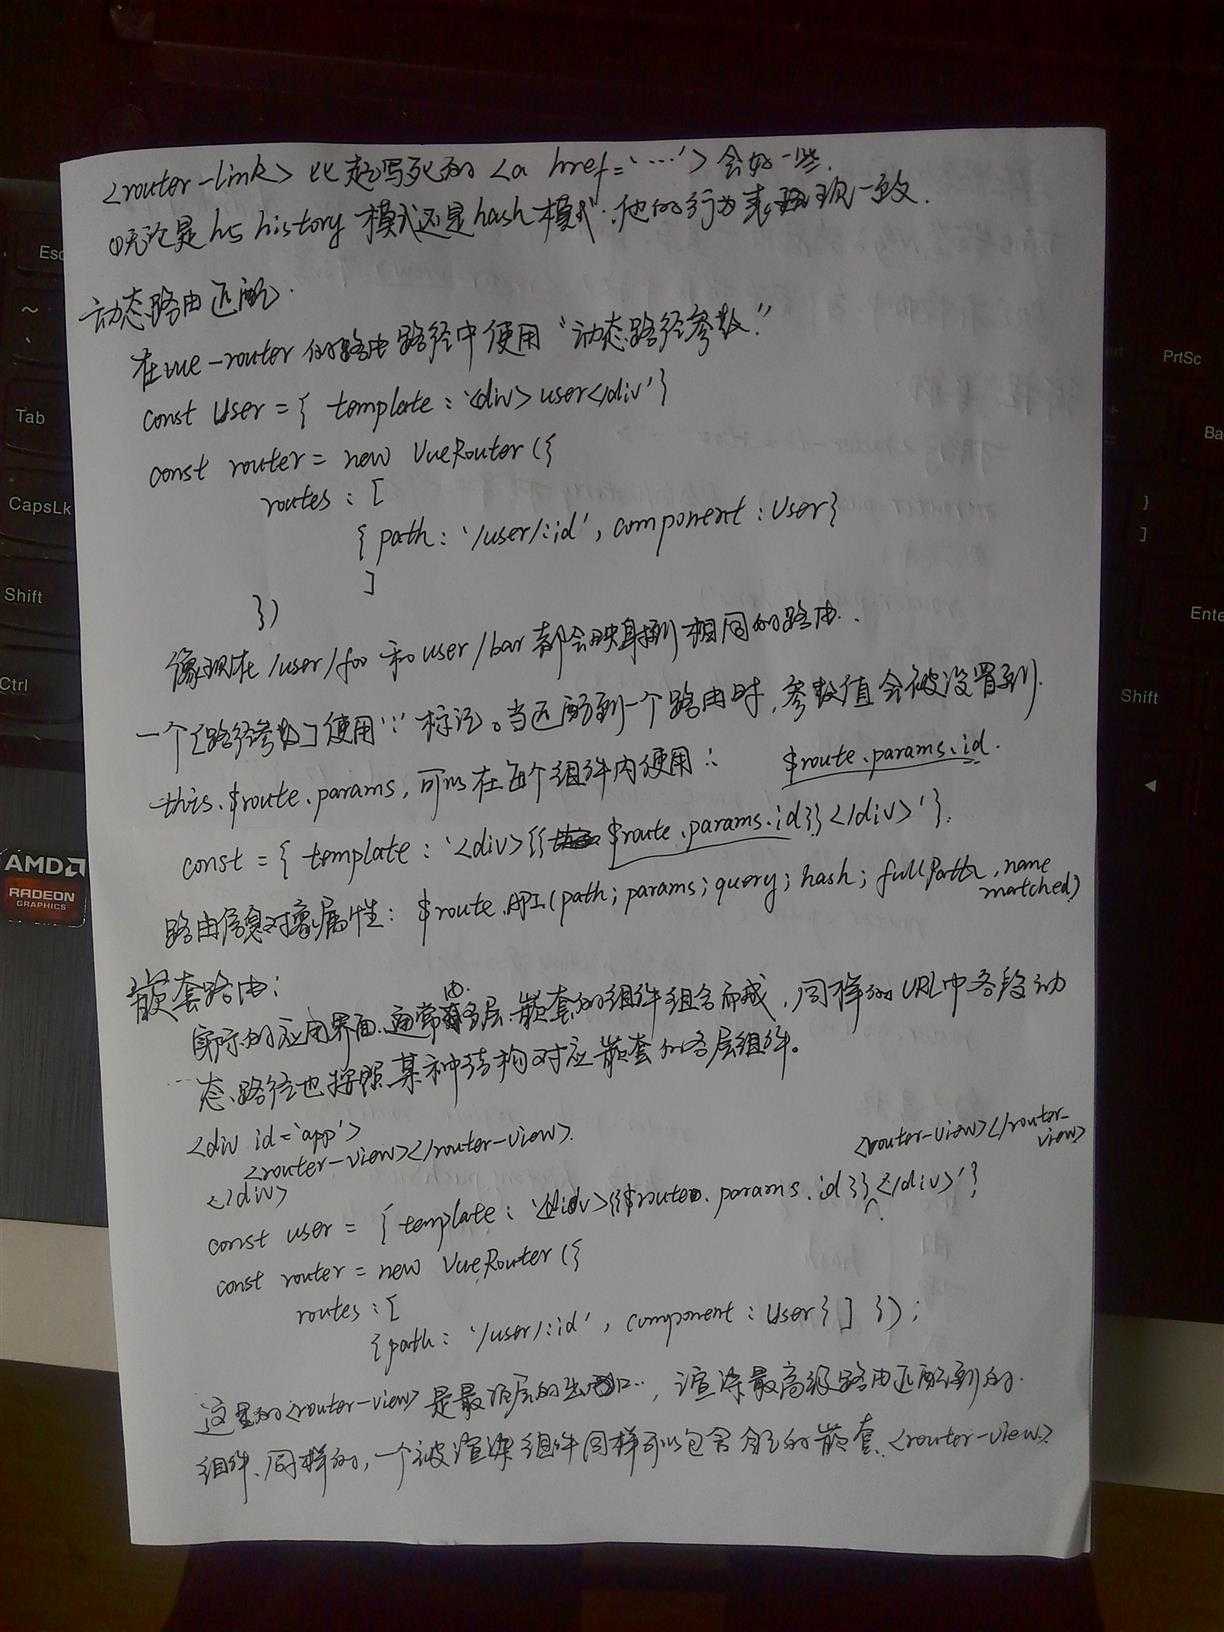 <router-link> 比起写死的 <a href='....'> 会好一些.
①无论是 h5 history 模式还是 hash 模式.他的行为表现一致.
动态路由匹配.
在vue-router 的路由路径中使用 "动态路径参数."
const User = { template : '<div> user</div' }
const router = new VueRouter ({
routes : [
{ path : '/user/:id' , component : User }
]
})
像现在 /user/foo 和 user/bar 都会映射到相同的路由.
一个[路径参数]使用 ':' 标记。当匹配到一个路由时,参数值会被设置到.
this.$route.params, 可以在每个组件内使用: $route.params.id.
const = { template : '<div>{{ $route.params.id}}</div>' }.
路由信息对象属性: $route.API(path; params; query; hash; fullPath, name
matched)
嵌套路由:
实际的应用界面.通常由多层.嵌套的组件组合而成, 同样的URL中各段动
态路径也按照某种结构对应嵌套的各层组件。
<div id='app'>
<router-view></router-view>.
</div>
<router-view></router-
view>
const user = { template : '<div>{{$route. params. id }}</div>' }
const router = new VueRouter ({
routes : [
{path : '/user/:id' , component : User } ] });
这里的<router-view> 是最顶层的出口., 渲染最高级路由匹配到的.
组件、同样的, 一个被渲染组件同样可以包含自己的嵌套.<router-view>
Esc
~
Tab
CapsLk
Shift
Ctrl
AMD
RADEON
GRAPHICS
PrtSc
Ba
}
]
Ente
Shift